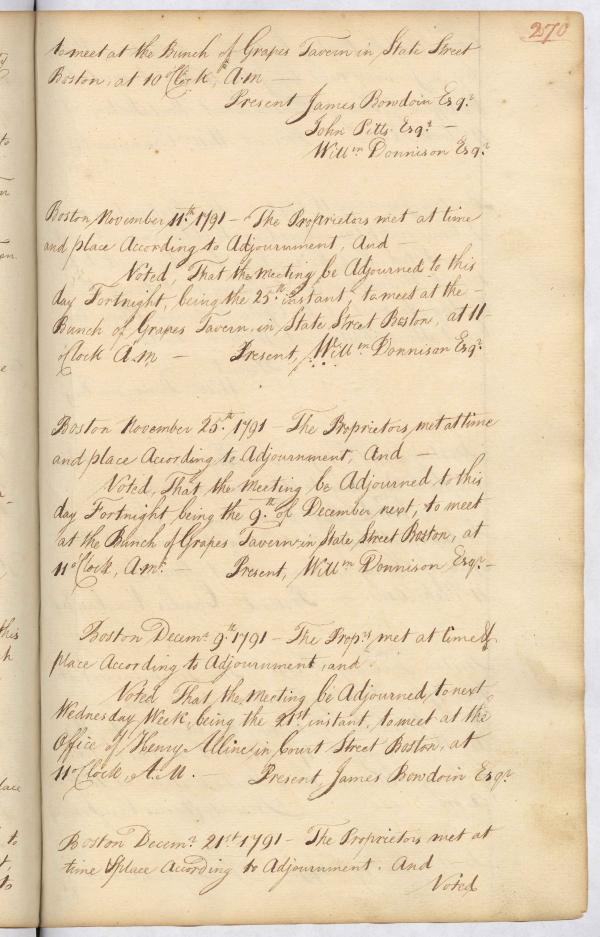 270
to meet at the Bunch of Grapes Tavern in State Street
Boston, at 10 oClock, A.m —
Present James Bowdoin Esqr.
John Pitts Esqr. —
Willm Donnison Esqr.
Boston November 11th. 1791 — The Proprietors met at time
and place According to Adjournment, And —
Voted, That the Meeting be Adjourned to this
day Fortnight, being the 25th instant, to meet at the —
Bunch of Grapes Tavern, in State Street Boston, at 11
oClock A.m — Present, Willm Donnison Esqr.
Boston November 25th. 1791 — The Proprietors met at time
and place According to Adjournment, And —
Voted, That the Meeting be Adjourned to this
day Fortnight being the 9th. of December next, to meet
at the Bunch of Grapes Tavern in State Street Boston, at
11 oClock, A.m. — Present, Willm Donnison Esqr. —
Boston Decemr. 9th 1791 — The Proprs. met at time &
place According to Adjournment, and
Voted That the Meeting be Adjourned, to next
Wednesday Week, being the 21st instant, to meet at the
Office of Henry Alline in Court Street Boston, at
11 oClock, A.M. — Present, James Bowdoin Esqr.
Boston Decemr. 21st 1791 — The Proprietors met at
time & place According to Adjournment. And
Voted